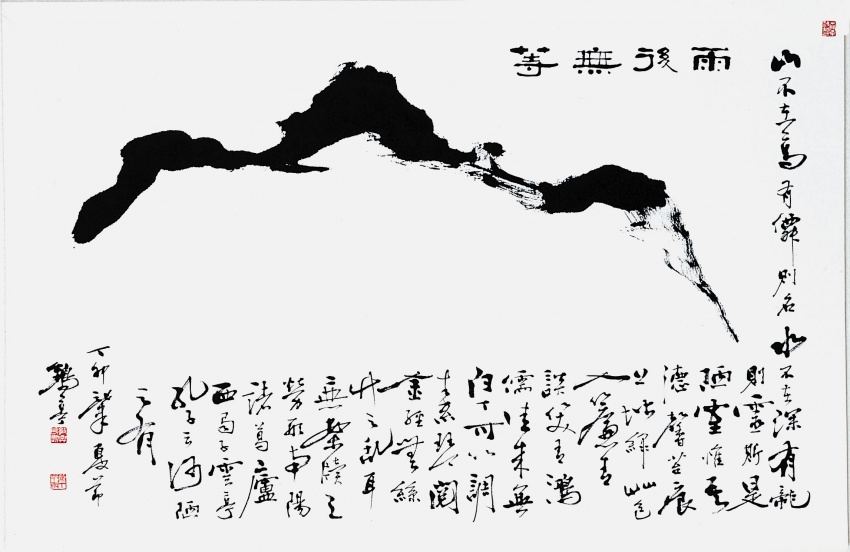 雨後無等
山不在高有僊則名水不在深有龍
則靈斯是
陋室惟吾
德馨苔痕
上堦綠艸色
入簾青
談笑有鴻
儒往來無
白丁可以調
素琴閱
金經無絲
竹之亂耳
無案牘之
勞形南陽
諸葛廬
西蜀子雲亭
孔子云何陋
之有
丁卯肇夏節